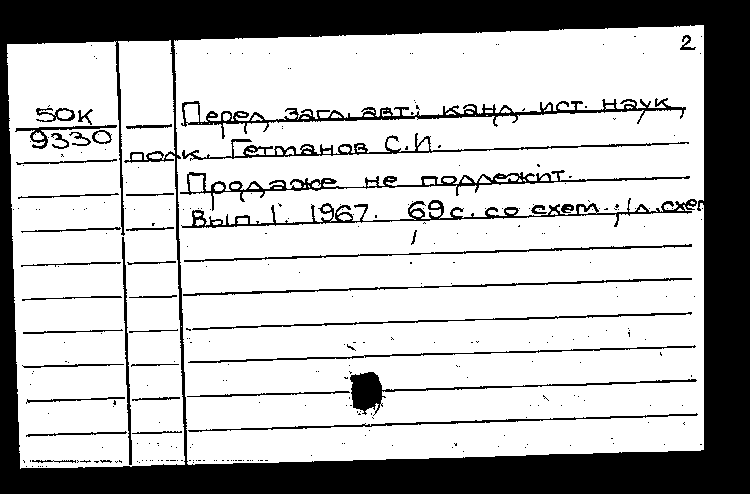 2
50К
9330
Перед загл. авт.: канд. ист. наук,
полк. Гетманов С.И.
Продаже не подлежит.
Вып. 1. 1967. 69 с. со схем.; 1 л. схем